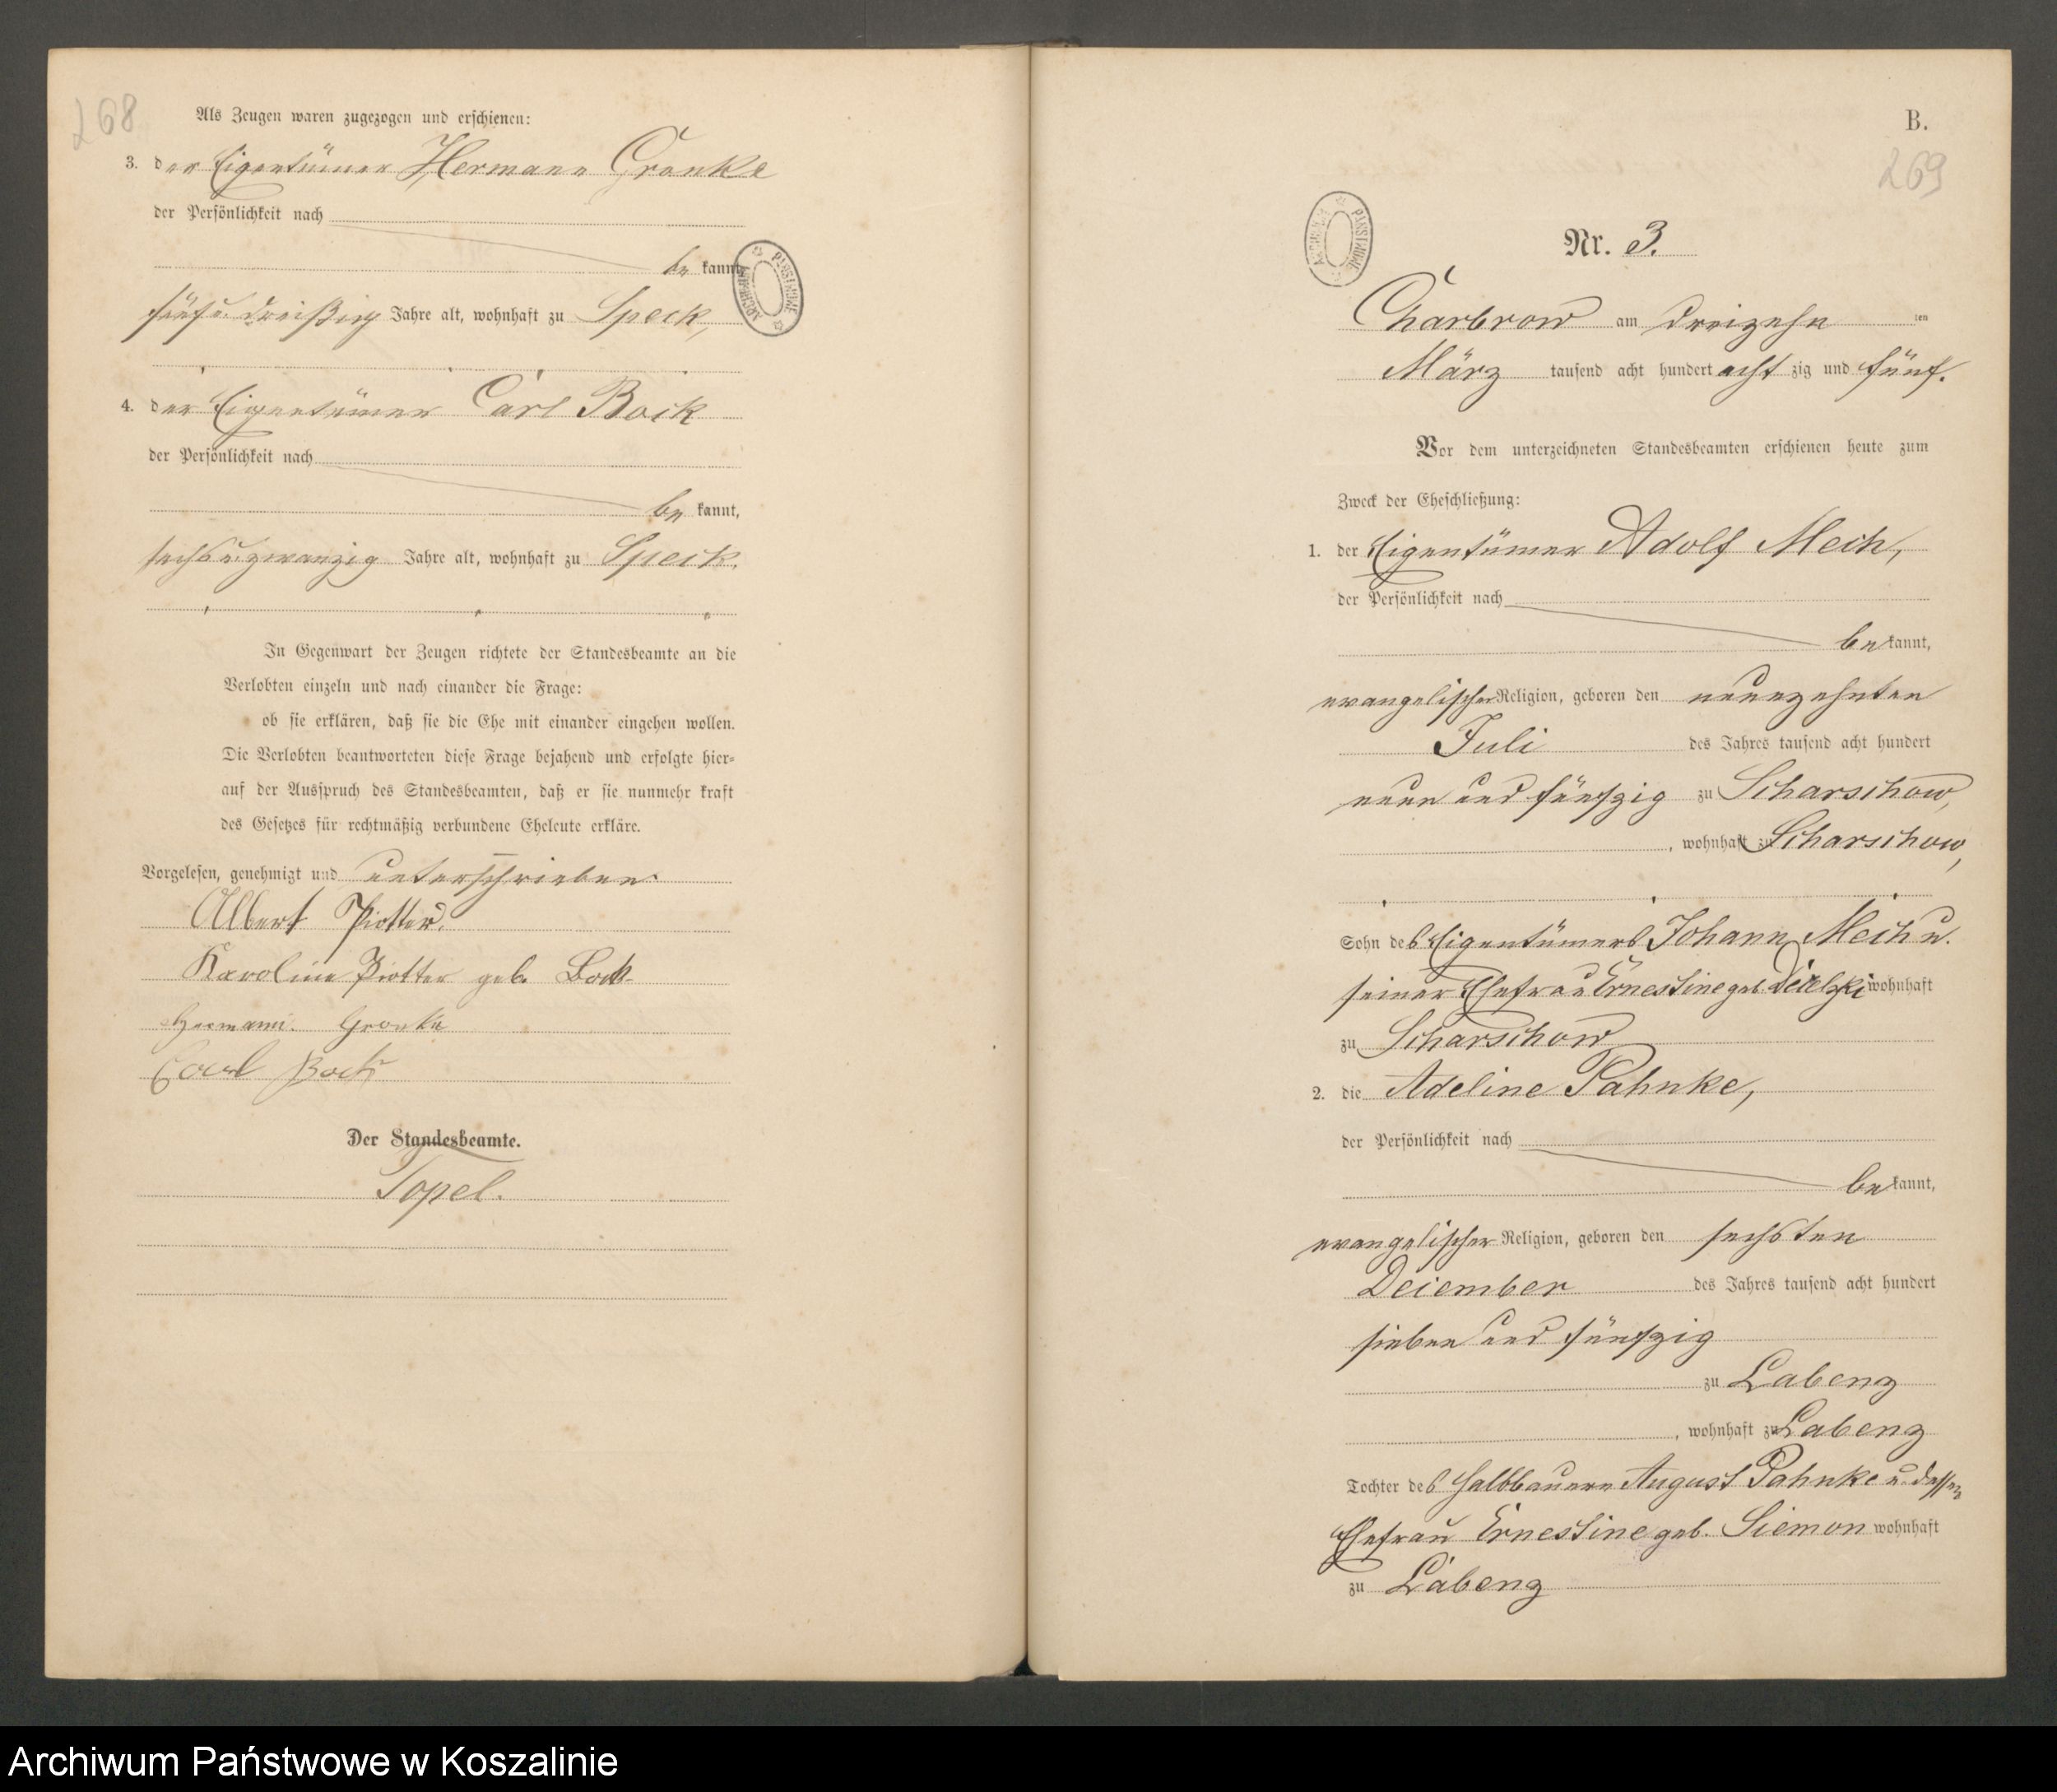 268
Als Zeugen waren zugezogen und erschienen:
3. der Eigentümer Hermann Gronke
der Persönlichkeit nach
be kannt,
fünfu. dreißig Jahre alt, wohnhaft zu Speck,
4. der Eigentümer Carl Bock
der Persönlichkeit nach
be kannt,
sechsu. zwanzig Jahre alt, wohnhaft zu Speck.
In Gegenwart der Zeugen richtete der Standesbeamte an die
Verlobten einzeln und nach einander die Frage:
ob sie erklären, daß sie die Ehe mit einander eingehen wollen.
Die Verlobten beantworteten diese Frage bejahend und erfolgte hier-
auf der Ausspruch des Standesbeamten, daß er sie nunmehr kraft
des Gesetzes für rechtmäßig verbundene Eheleute erkläre.
Vorgelesen, genehmigt und unterschrieben
Albert Piotter.
Karoline Piotter geb. Bock
Hermann Gronke
Carl Bock
Der Standesbeamte.
Topel.
B.
269
Nr. 3.
Charbrow am dreizehn ten
März tausend acht hundert acht zig und fünf.
Vor dem unterzeichneten Standesbeamten erschienen heute zum
Zweck der Eheschließung:
1. der Eigentümer Adolf Mech,
der Persönlichkeit nach
be kannt,
evangelischer Religion, geboren den neunzehnten
Juli des Jahres tausend acht hundert
neun und fünfzig zu Scharschow,
, wohnhaft zu Scharschow,
Sohn des Eigentümers Johann Mech u.
seiner Ehefrau Ernestine geb. wohnhaft
zu Scharschow
2. die Adeline Pahnke,
der Persönlichkeit nach
be kannt,
evangelischer Religion, geboren den sechsten
December des Jahres tausend acht hundert
sieben und fünfzig
zu Labenz
, wohnhaft zu Labenz
Tochter des Halbbauern August Pahnke u. dessen
Ehefrau Ernestine geb. Siemon wohnhaft
zu Labenz
Archiwum Państwowe w Koszalinie